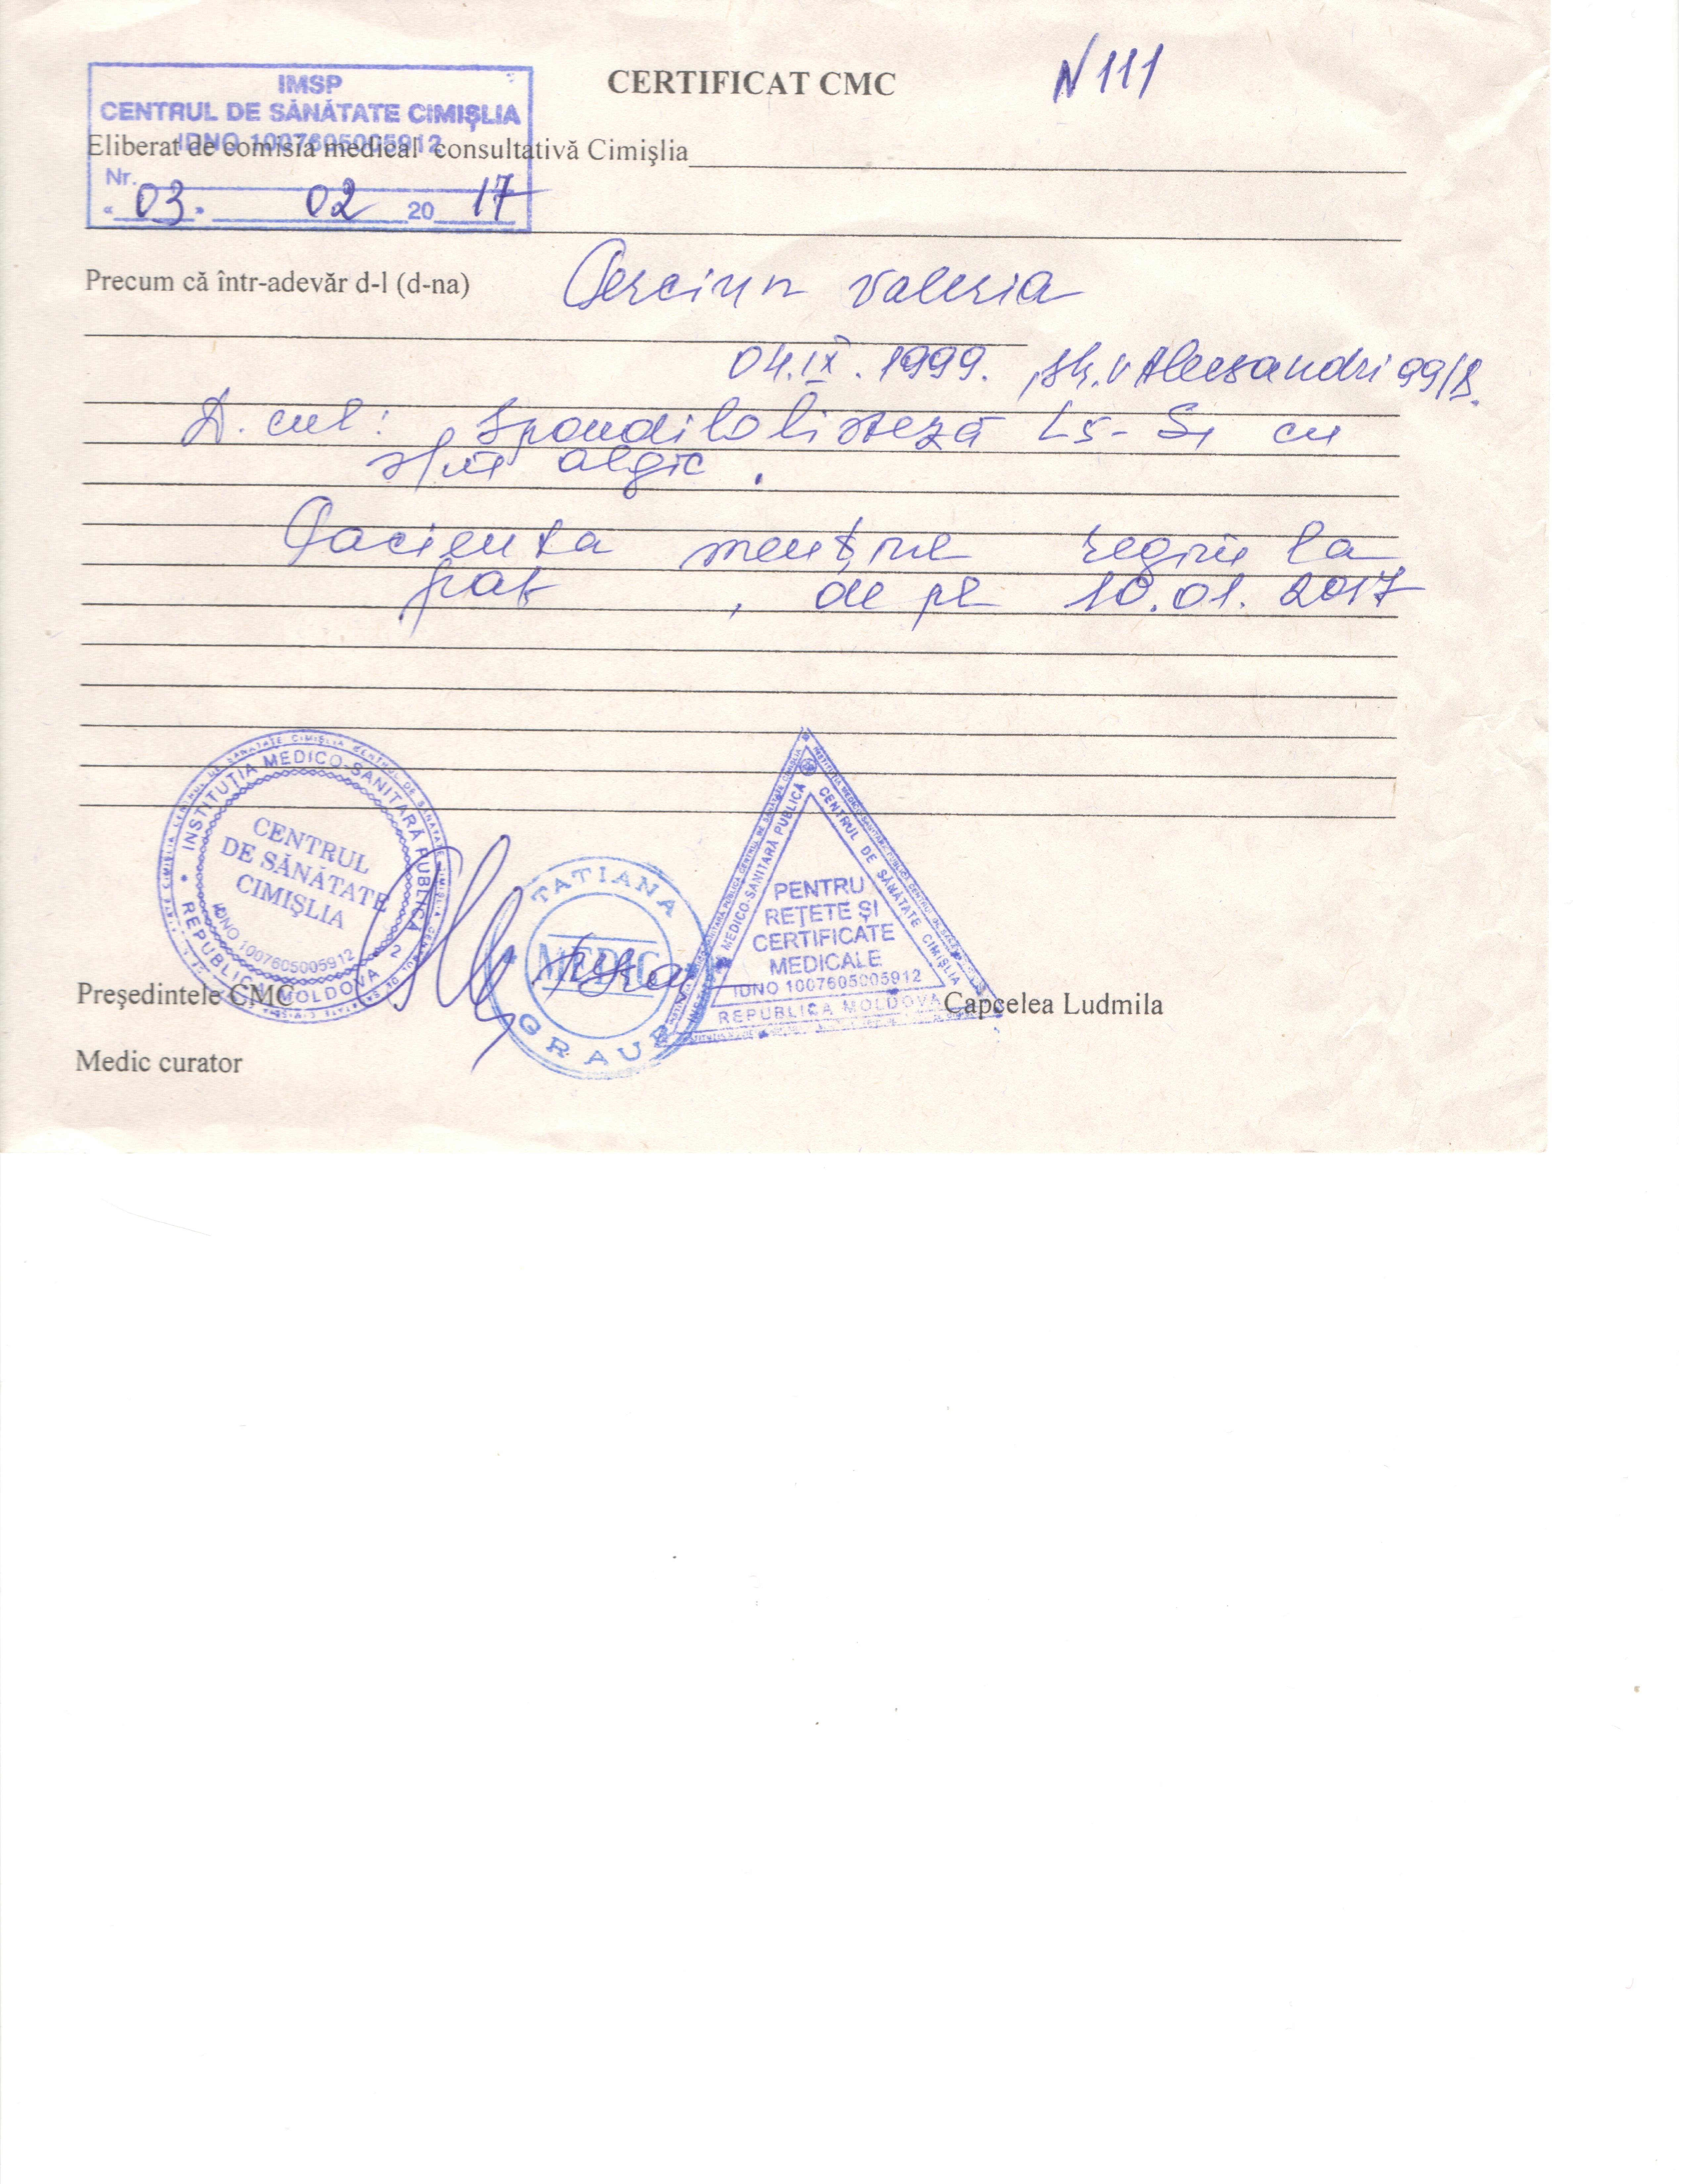 IMSP
CENTRUL DE SĂNĂTATE CIMIŞLIA
IDNO 1007605005912
Nr.
« 03 » 02 20 17
CERTIFICAT CMC
N 111
Eliberat de comisia medical consultativă Cimişlia
Precum că într-adevăr d-l (d-na) Valeria
04.IX.1999. , str. V Alecsandri 99/8.
D. cul: Spondilolisteză L5-S1 cu
algic.
Pacienta menţine regim la
pat , de pe 10.01.2017
INSTITUŢIA MEDICO-SANITARĂ PUBLICĂ
CENTRUL
DE SĂNĂTATE
CIMIŞLIA
IDNO 1007605005912
REPUBLICA MOLDOVA 2
TATIANA
MEDIC
GRAUR
MEDICO-SANITARĂ PUBLICĂ
CENTRUL DE SĂNĂTATE CIMIŞLIA
PENTRU
REŢETE ŞI
CERTIFICATE
MEDICALE
IDNO 1007605005912
REPUBLICA MOLDOVA
Preşedintele CMC Capcelea Ludmila
Medic curator